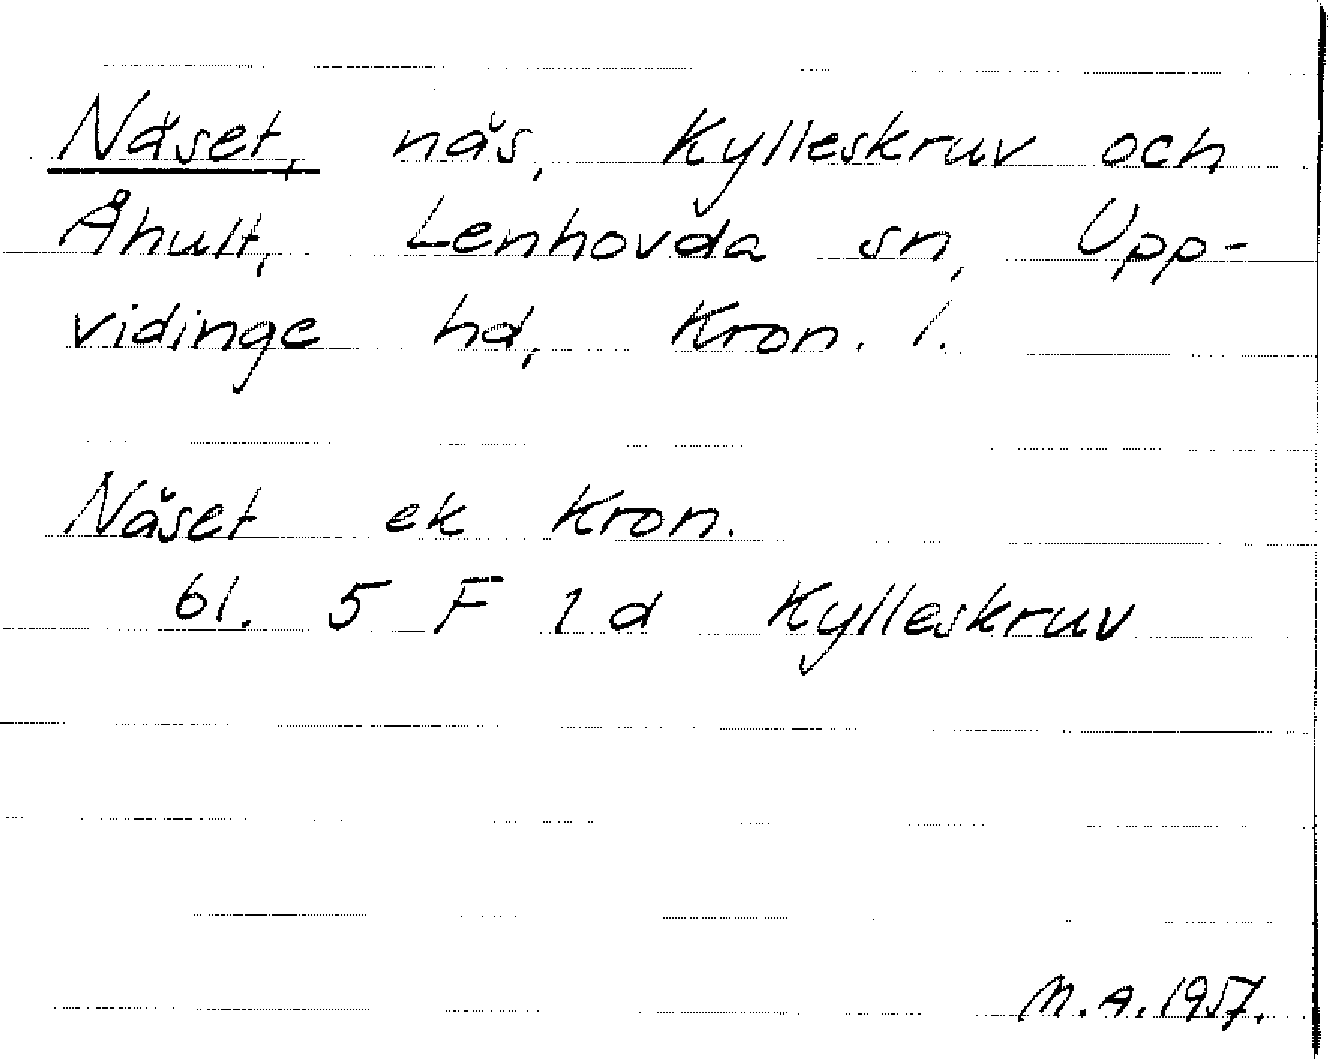 Näset, näs, Kylleskruv och
Åhult, Lenhovda sn, Upp-
vidinge hd, Kron. l.
Näset ek Kron.
bl. 5 F 1 d Kylleskruv
M.A. 1957.